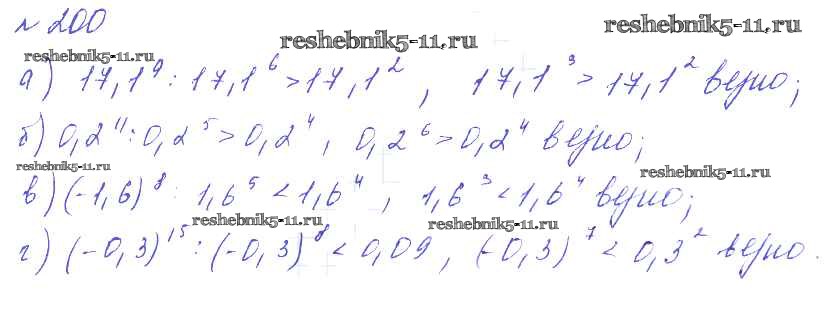 № 200
reshebnik5-11.ru
reshebnik5-11.ru
reshebnik5-11.ru
а) 17,1⁹ : 17,1⁶ > 17,1², 17,1³ > 17,1² верно;
б) 0,2¹¹ : 0,2⁵ > 0,2⁴, 0,2⁶ > 0,2⁴ верно;
reshebnik5-11.ru
reshebnik5-11.ru
в) (-1,6)⁸ : 1,6⁵ < 1,6⁴, 1,6³ < 1,6⁴ верно;
reshebnik5-11.ru
reshebnik5-11.ru
г) (-0,3)¹⁵ : (-0,3)⁸ < 0,09, (-0,3)⁷ < 0,3² верно.